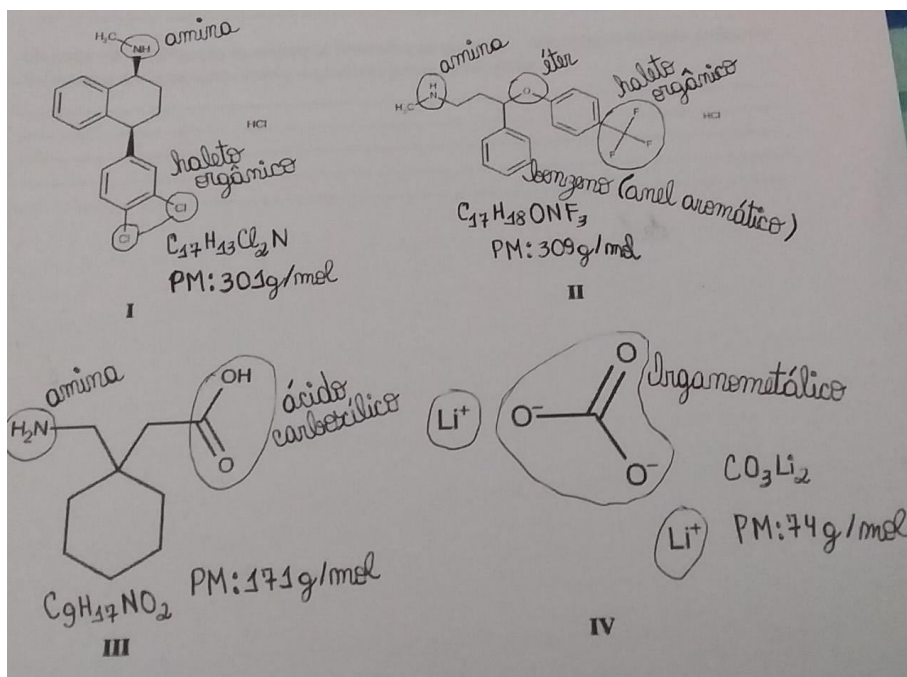 H₃C
NH
amina
HCl
haleto
orgânico
Cl
Cl
C₁₇H₁₃Cl₂N
PM: 301g/mol
I
amina
éter
haleto
orgânico
H
N
H₃C
O
F
F
F
HCl
benzeno (anel aromático)
C₁₇H₁₈ONF₃
PM: 309g/mol
II
amina
H₂N
OH
O
ácido
carboxílico
C₉H₁₇NO₂
PM: 171g/mol
III
Li⁺
O
O⁻
O⁻
Organometálico
CO₃Li₂
Li⁺
PM: 74g/mol
IV